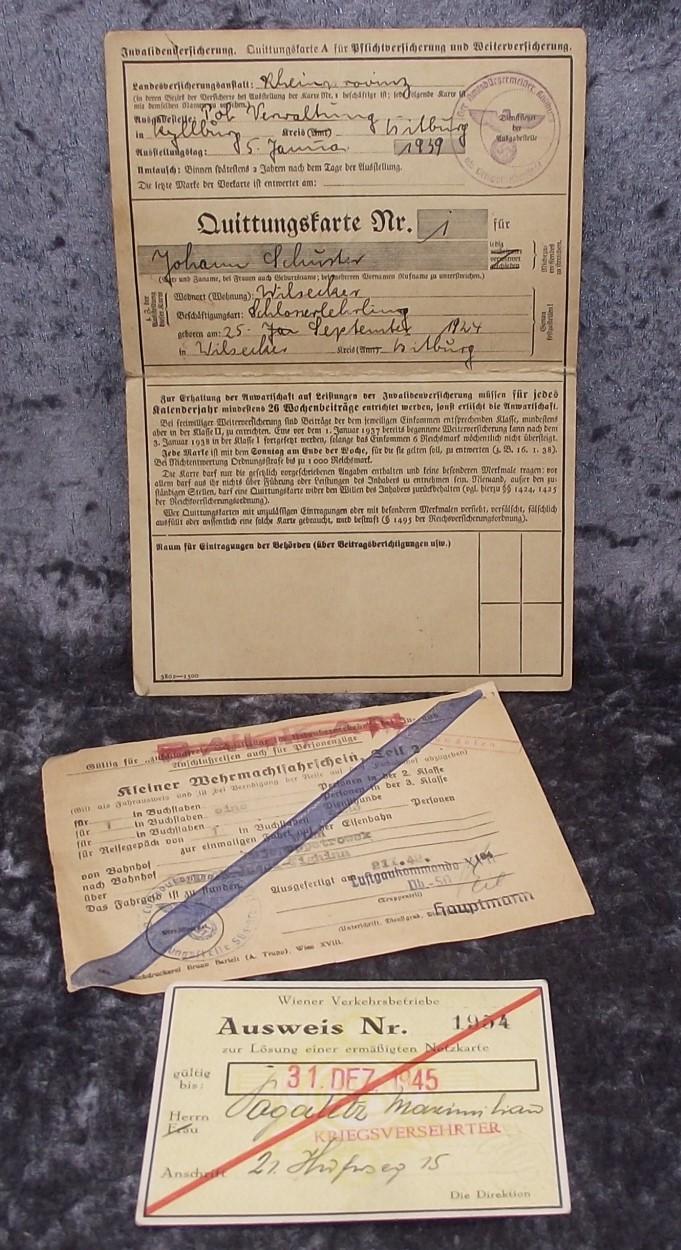 Invalidenversicherung. Quittungskarte A für Pflichtversicherung und Weiterversicherung.
Landesversicherungsanstalt: Rheinprovinz
(in deren Bezirk der Versicherte bei Ausstellung der Karte Nr. 1 beschäftigt ist; jede folgende Karte ist
mit demselben Namen zu versehen.)
Ausgabestelle: Pol. Verwaltung
in Kyllburg Kreis (Amt) Bitburg
Ausstellungstag: 5. Januar 1939
Umtausch: Binnen spätestens 2 Jahren nach dem Tage der Ausstellung.
Die letzte Marke der Vorkarte ist entwertet am:
Dienstsiegel
der
Ausgabestelle
Quittungskarte Nr. 1 für
Johann Schuster
ledig
verheiratet
verwitwet
geschieden
(Vor- und Zuname, bei Frauen auch Geburtsname; bei mehreren Vornamen Rufname zu unterstreichen.)
Wohnort (Wohnung): Wilsecker
Beschäftigungsart: Schlosserlehrling
geboren am: 25. September 1924
in Wilsecker Kreis (Amt) Bitburg
Zur Erhaltung der Anwartschaft auf Leistungen der Invalidenversicherung müssen für jedes
Kalenderjahr mindestens 26 Wochenbeiträge entrichtet werden, sonst erlischt die Anwartschaft.
Bei freiwilliger Weiterversicherung sind Beiträge der dem jeweiligen Einkommen entsprechenden Klasse, mindestens
aber in der Klasse II, zu entrichten. Eine vor dem 1. Januar 1937 bereits begonnene Weiterversicherung kann nach dem
3. Januar 1938 in der Klasse I fortgesetzt werden, solange das Einkommen 6 Reichsmark wöchentlich nicht übersteigt.
Jede Marke ist mit dem Sonntag am Ende der Woche, für die sie gelten soll, zu entwerten (z. B. 16. 1. 38).
Bei Nichtentwertung Ordnungsstrafe bis zu 1000 Reichsmark.
Die Karte darf nur die gesetzlich vorgeschriebenen Angaben enthalten und keine besonderen Merkmale tragen; vor
allem darf aus ihr nichts über Führung oder Leistungen des Inhabers zu entnehmen sein. Niemand, außer den zu-
ständigen Stellen, darf eine Quittungskarte wider den Willen des Inhabers zurückbehalten (vgl. hierzu §§ 1424, 1425
der Reichsversicherungsordnung).
Wer Quittungskarten mit unzulässigen Eintragungen oder mit besonderen Merkmalen versieht, verfälscht, fälschlich
ausfüllt oder wissentlich eine solche Karte gebraucht, wird bestraft (§ 1495 der Reichsversicherungsordnung).
Raum für Eintragungen der Behörden (über Beitragsberichtigungen usw.)
Anschlußreisen auch für Personenzüge
Kleiner Wehrmachtfahrschein, Teil 2
für in Buchstaben eine Personen in der 2. Klasse
für 1 in Buchstaben Personen in der 3. Klasse
für in Buchstaben Diensthunde
für Reisegepäck von in Buchstaben Personen
zur einmaligen Fahrt auf der Eisenbahn
von Bahnhof
nach Bahnhof
über
Das Fahrgeld ist zu stunden.
Ausgefertigt am
Luftgaukommando XVII
Hauptmann
Buchdruckerei Bruno Bartelt (A. Trupp), Wien XVIII.
Wiener Verkehrsbetriebe
Ausweis Nr. 1954
zur Lösung einer ermäßigten Netzkarte
gültig
bis: 31. DEZ. 1945
Herrn
Frau Maximilian
KRIEGSVERSEHRTER
Anschrift 21. 15
Die Direktion